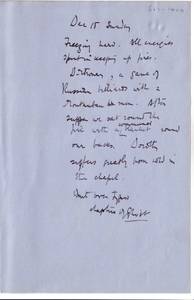 Dec 15 Sunday
Freezing hard. All energies
spent in keeping up fires.
, a game of
Russian billiards with a
man. After
supper we sat round the
fire with a blanket round
our knees. Dorothy
suffers greatly from cold in
the chapel.
Went over typed
chapters of